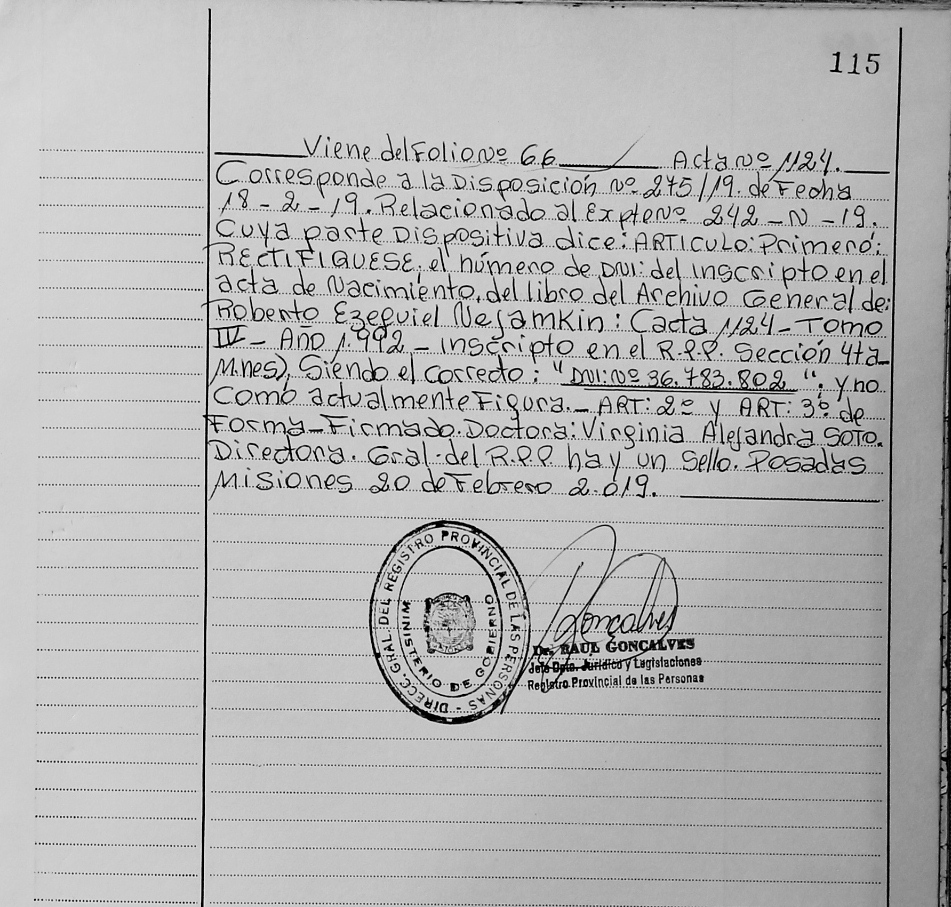 115
Viene del Folio Nº 66 Acta Nº 1124.
Corresponde a la Disposición Nº 275/19. de Fecha
18-2-19. Relacionado al Expte Nº 242-N-19.
Cuya parte Dispositiva dice: ARTICULO: Primero:
RECTIFIQUESE. el número de DNI: del inscripto en el
acta de Nacimiento. del libro del Archivo General de:
Roberto Ezequiel Nesamkin: Cacta 1124-Tomo
IV- Año 1.992 - inscripto en el R.P.P. Sección 4ta-
M.nes). Siendo el correcto: "DNI: Nº 36.783.802". y no
Como actualmente Figura.- ART: 2º y ART: 3º de
Forma-Firmado. Doctora: Virginia Alejandra SOTO.
Directora. Gral. del R.P.P. hay un Sello. Posadas
Misiones 20 de Febrero 2.019.
DIRECC. GRAL. DEL REGISTRO PROVINCIAL DE LAS PERSONAS -
MINISTERIO DE GOBIERNO
Gonçalves
Dr. RAUL GONCALVES
Jefe Dpto. Jurídico y Legislaciones
Registro Provincial de las Personas